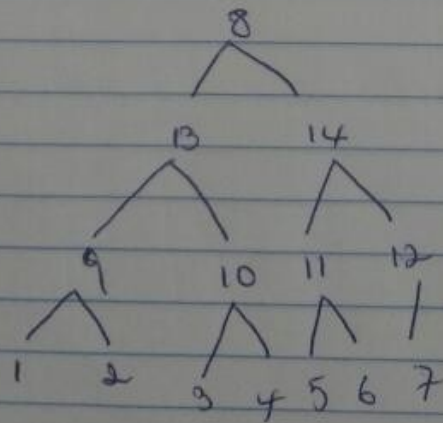 8
13 14
9 10 11 12
1 2 3 4 5 6 7